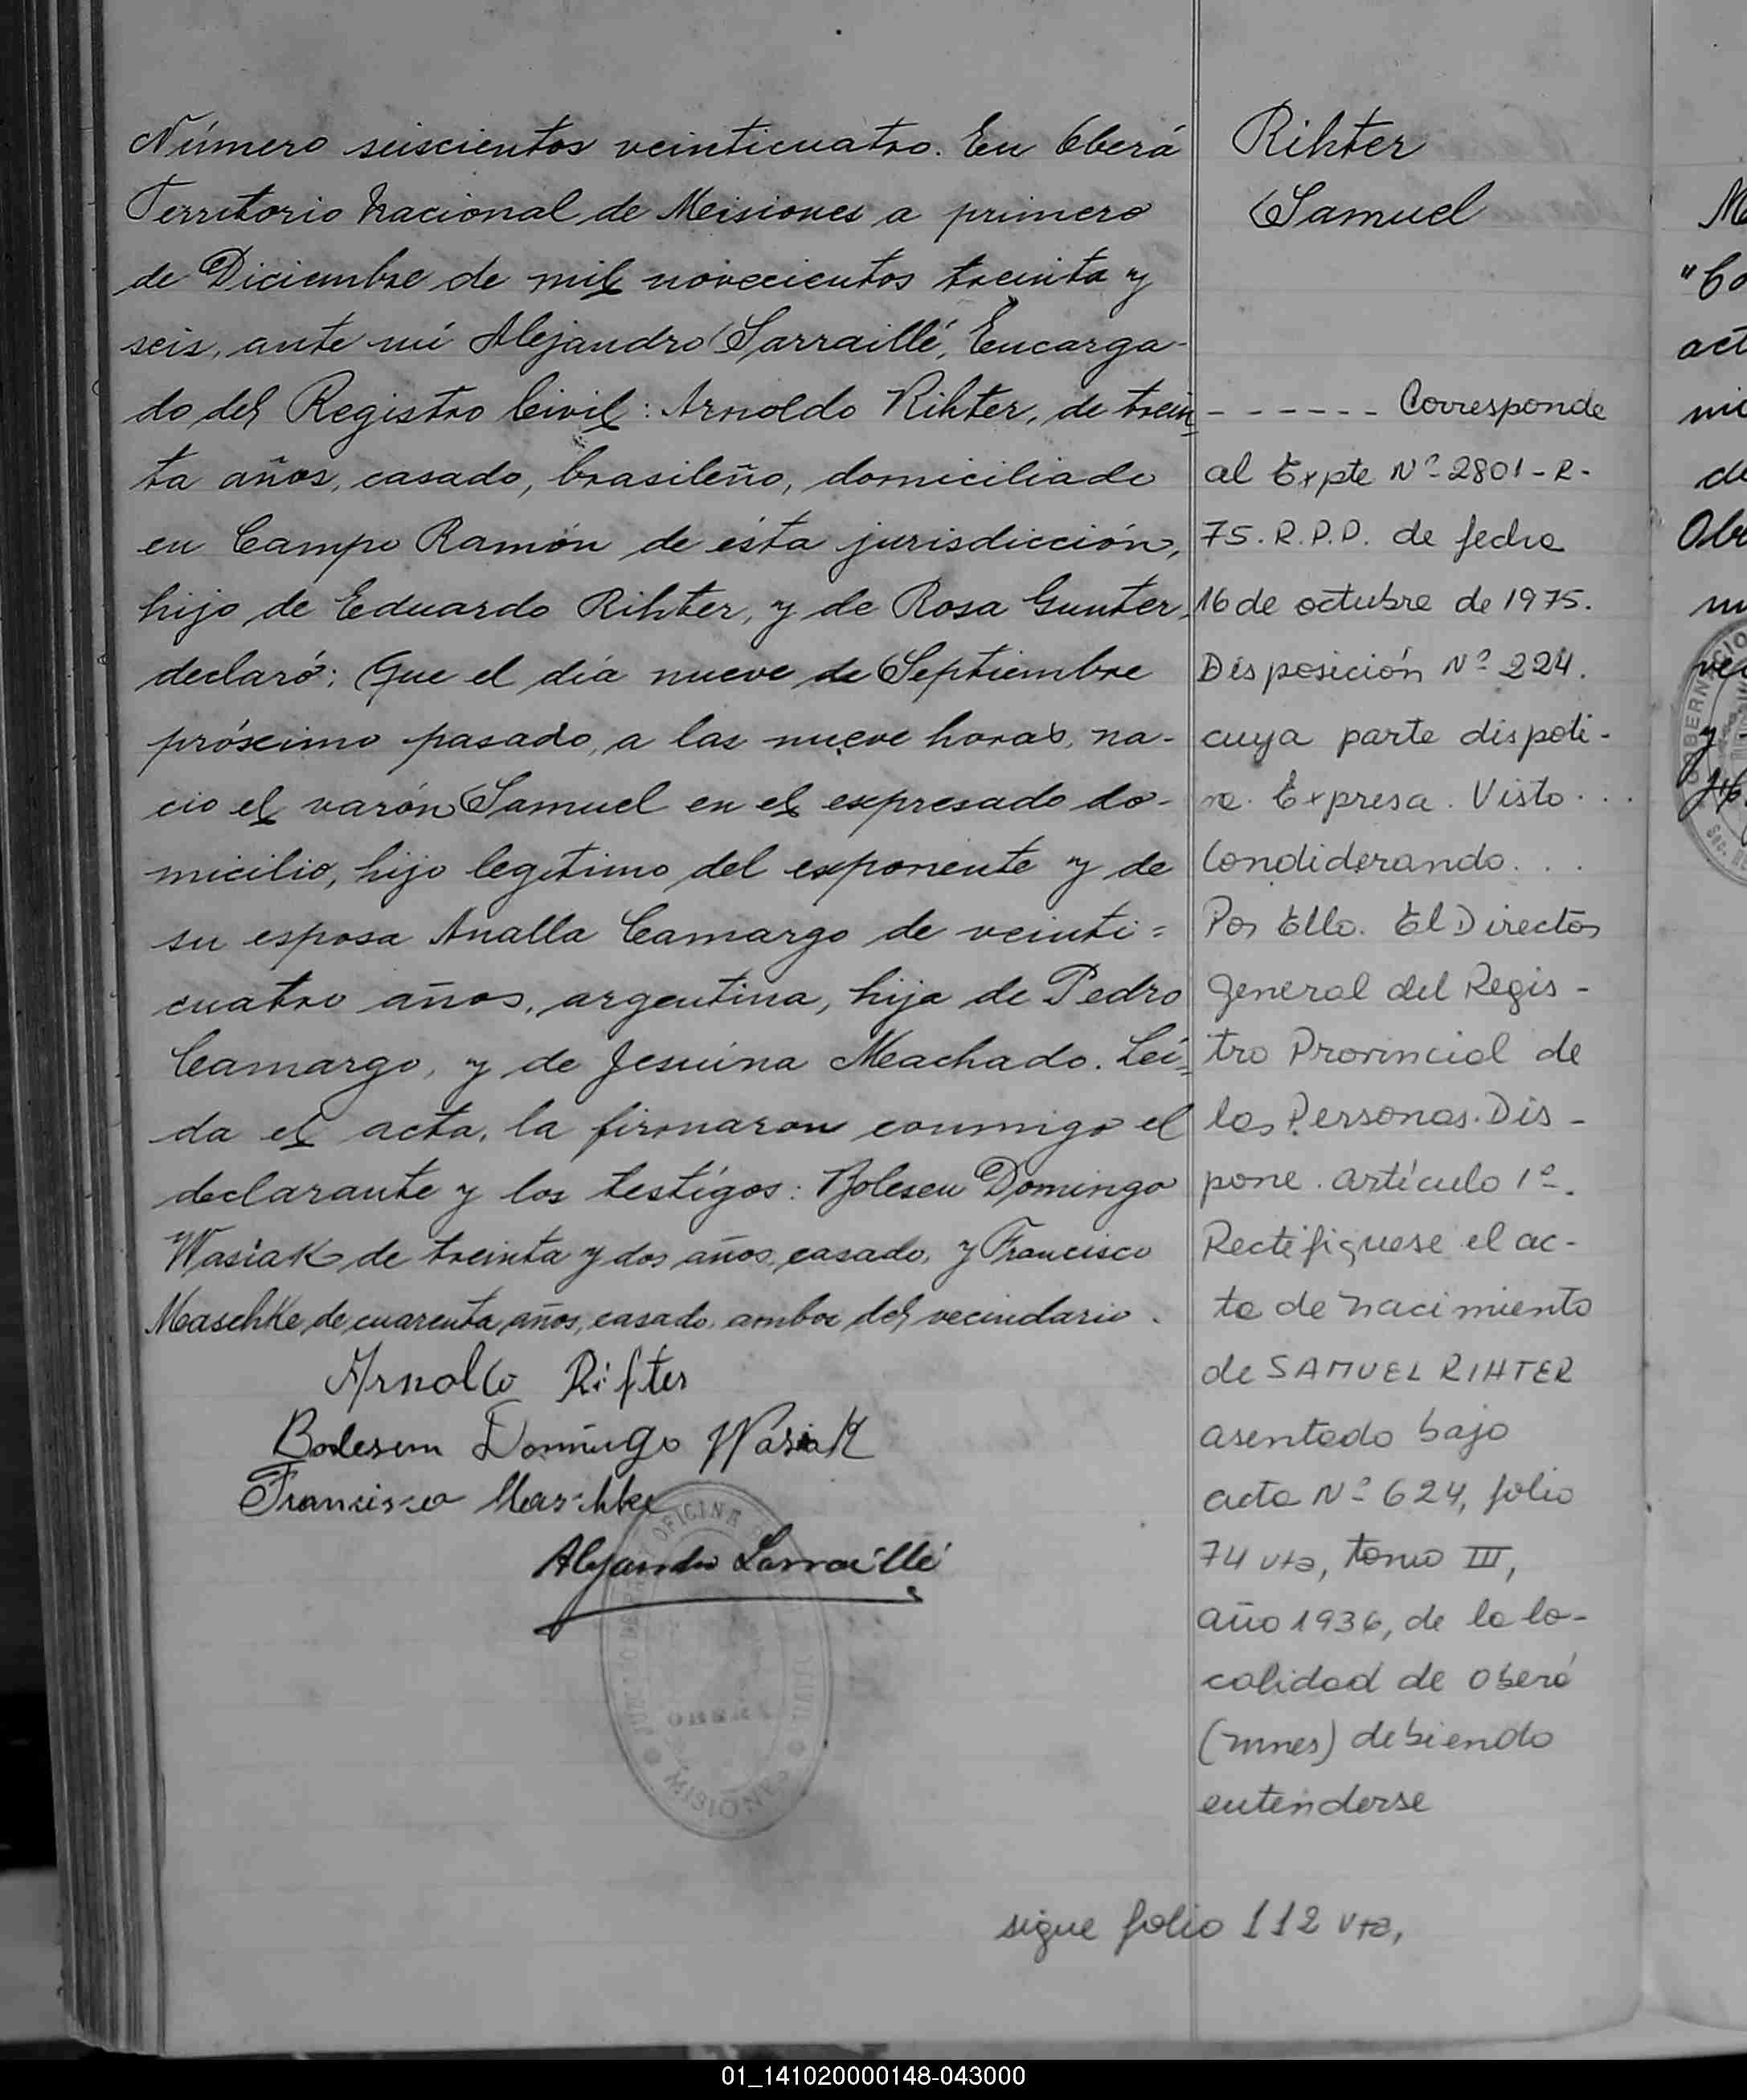 Número seiscientos veinticuatro. En Oberá
Territorio Nacional de Misiones a primero
de Diciembre de mil novecientos treinta y
seis, ante mí Alejandro Sarraillé, Encarga-
do del Registro Civil: Arnoldo Rihter, de trein-
ta años, casado, brasileño, domiciliado
en Campo Ramón de ésta jurisdicción,
hijo de Eduardo Rihter, y de Rosa Gunter,
declaró: Que el día nueve de Septiembre
próximo pasado, a las nueve horas, na-
cio el varón Samuel en el expresado do-
micilio, hijo legitimo del exponente y de
su esposa Analla Camargo de veinti=
cuatro años, argentina, hija de Pedro
Camargo, y de Jesuina Machado. Lei=
da el acta, la firmaron conmigo el
declarante y los testigos: Bolesen Domingo
Wasiak de treinta y dos años, casado, y Francisco
Maschke de cuarenta años, casado, ambos del vecindario.
Arnoldo Rihter
Bolesen Domingo Wasiak
Francisco Maschke
Alejandro Sarraillé
OFICINA
MISIONES
Rihter
Samuel
- - - - - - Corresponde
al Expte Nº 2801-R-
75. R.P.P. de fecha
16 de octubre de 1975.
Disposición Nº 224.
cuya parte dispoti-
va. Expresa. Visto...
Condiderando...
Por Ello. El Director
General del Regis-
tro Provincial de
las Personas. Dis-
pone. Artículo 1º.
Rectifiquese el ac-
ta de nacimiento
de SAMUEL RIHTER
asentado bajo
acta Nº 624, folio
74 vta, tomo III,
año 1936, de la lo-
calidad de Oberá
(mnes) debiendo
entenderse
sigue folio 112 vta,
01_141020000148-043000